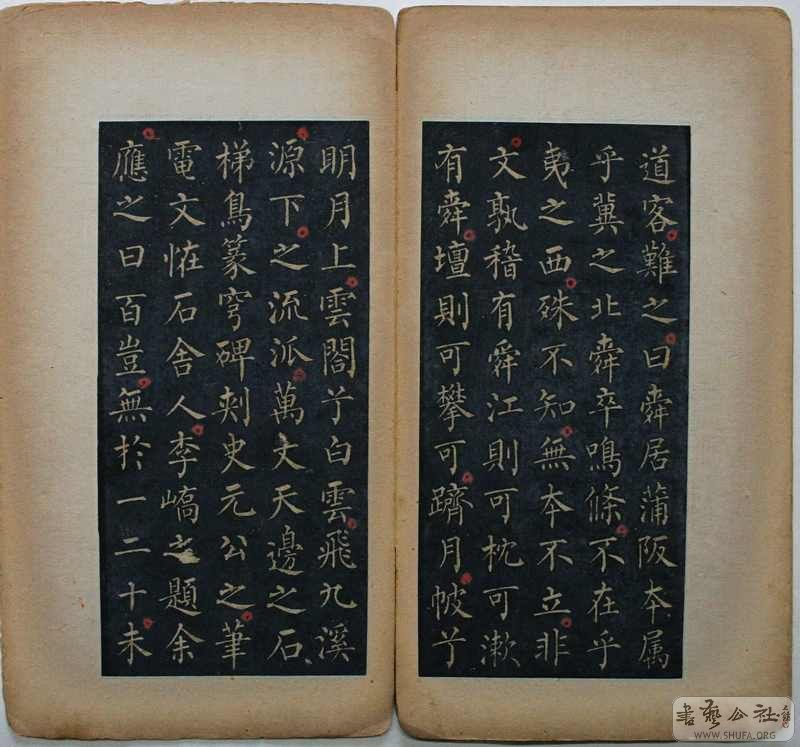 道客難之曰舜居蒲阪本属
乎冀之北舜卒鳴條不在乎
夷之西殊不知無本不立非
文孰稽有舜江則可枕可漱
有舜壇則可攀可躋月帔兮
明月上雲閤兮白雲飛九溪
源下之流派萬丈天邊之石
梯鳥篆穹碑刺史元公之筆
電文恠石舍人李嶠之題余
應之曰百豈無於一二十未
書藝公社
WWW.SHUFA.ORG